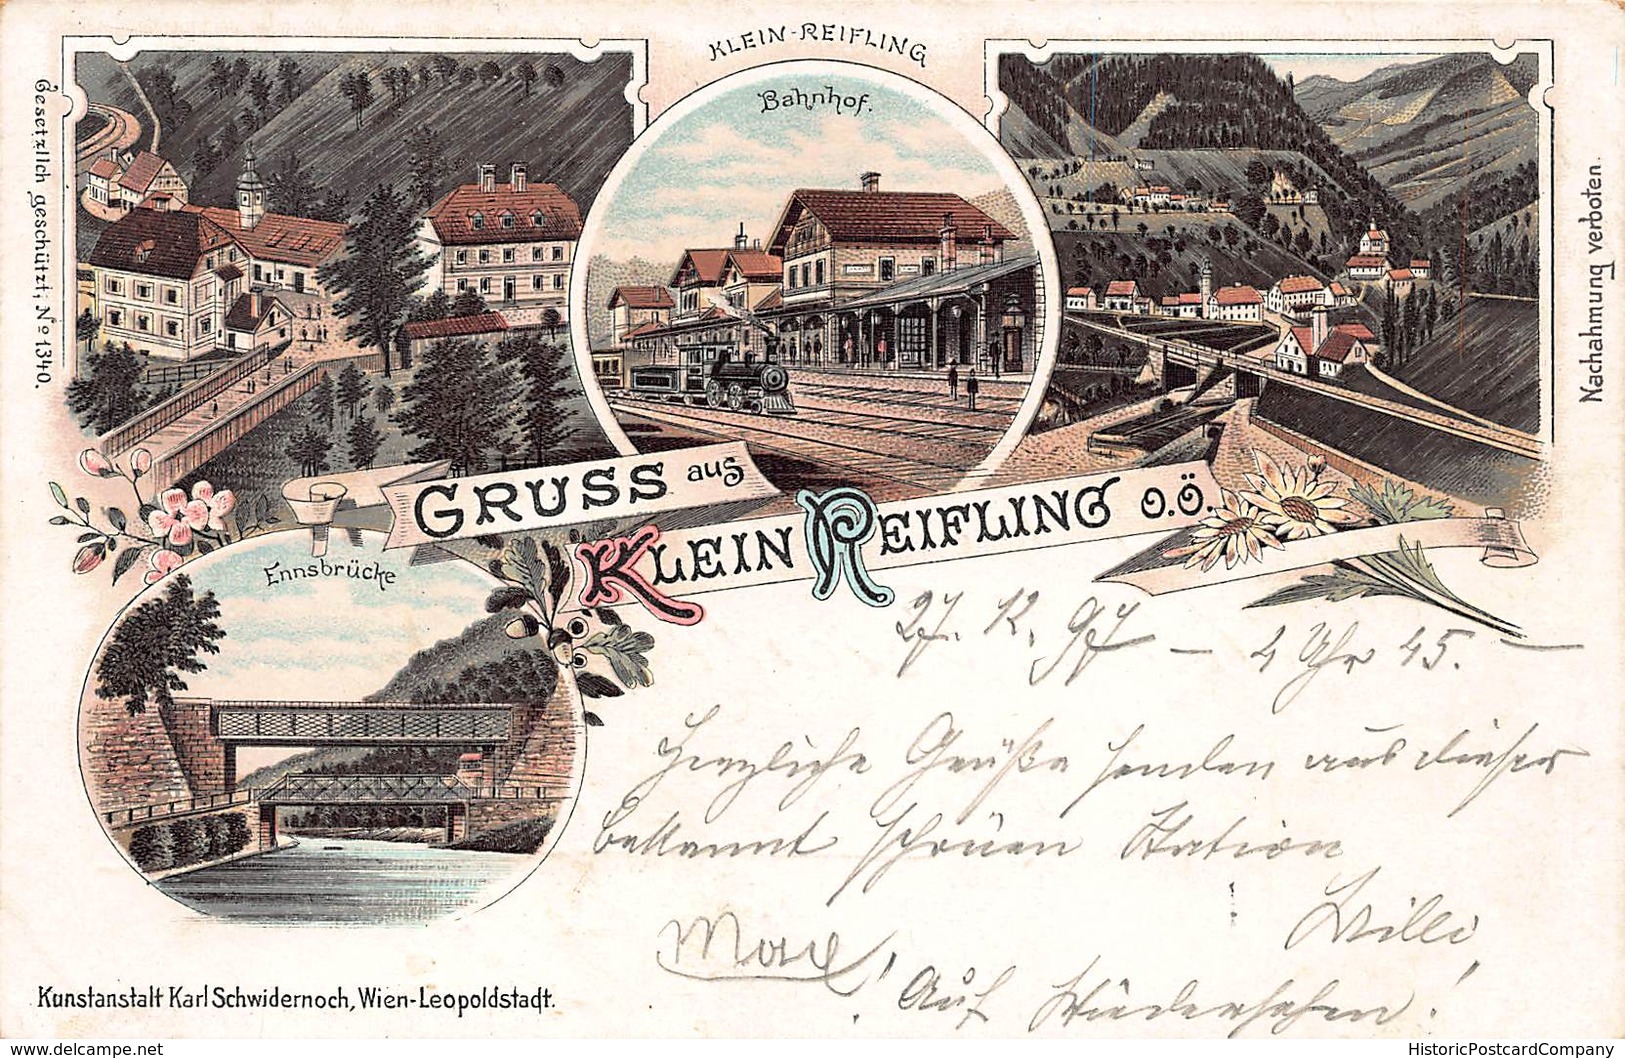 KLEIN-REIFLING
Bahnhof.
Gesetzlich geschützt; Nº 1340.
Nachahmung verboten.
GRUSS aus
KLEIN REIFLING O.Ö.
Ennsbrücke
27. 12. 97 — 4 Uhr 45. —
Herzliche Grüße senden aus dieser
bekannt schönen Station
Willi
Max
Auf Wiedersehen!
Kunstanstalt Karl Schwidernoch, Wien-Leopoldstadt.
www.delcampe.net
HistoricPostcardCompany